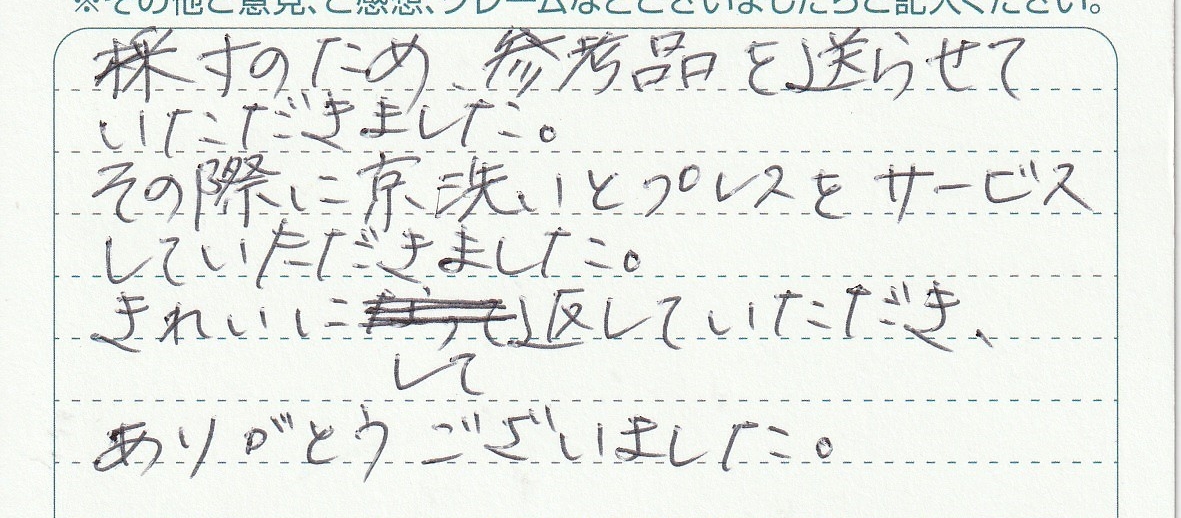 ※その他ご意見、ご感想、クレームなどございましたらご記入ください。
探すのため、参考品を送らせて
いただきました。
その際に京洗いとプレスをサービス
していただきました。
きれいに返していただき、
して
ありがとうございました。